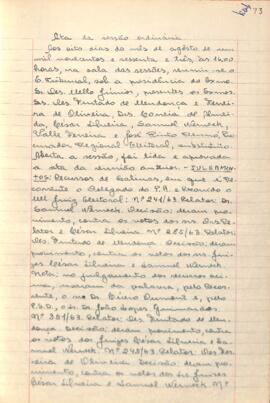 73
Ata da sessão ordinária
Aos oito dias do mês de agôsto de um
mil novecentos e sessenta e três, às 14,00
horas, na sala das sessões, reuniu-se o
E. Tribunal, sob a presidência do Exmo
Sr. Des. Mello Júnior, presentes os Exmos.
Srs. Des. Furtado de Mendonça e Ferrei-
ra de Oliveira, Drs. Corrêa de
César Silveira, Samuel Werneck,
Valle Ferreira e José Pinto
curador Regional Eleitoral, substituto.
Aberta a sessão, foi lida e aprovada
a ata da reunião anterior. - JULGAMEN-
TOS: Recursos de Salinas, em que é Re-
corrente o Delegado do P.R. e Recorrido o
MM Juiz Eleitoral: Nº 241/63. Relator: Dr.
Samuel Werneck. Decisão: deram pro-
vimento, contra os votos dos srs.
e César Silveira. Nº 285/63. Relator:
Des. Furtado de Mendonça. Decisão: deram
provimento, contra os votos dos srs. jui-
zes César Silveira e Samuel Werneck.
Nota: no julgamento dos recursos aci-
ma, usaram da palavra, pelo Recor-
rente, o sr. Dr. Cícero Dumont e, pelo
P.S.D., o sr. Dr. João Lopes Guimarães.
Nº 351/63. Relator: Des. Furtado de Men-
donça. Decisão: deram provimento, contra
os votos dos juizes César Silveira e Sa-
muel Werneck. Nº 248/63. Relator: Des. Fer-
reira de Oliveira. Decisão: deram provi-
mento, contra os votos dos srs. juizes
César Silveira e Samuel Werneck. Nº